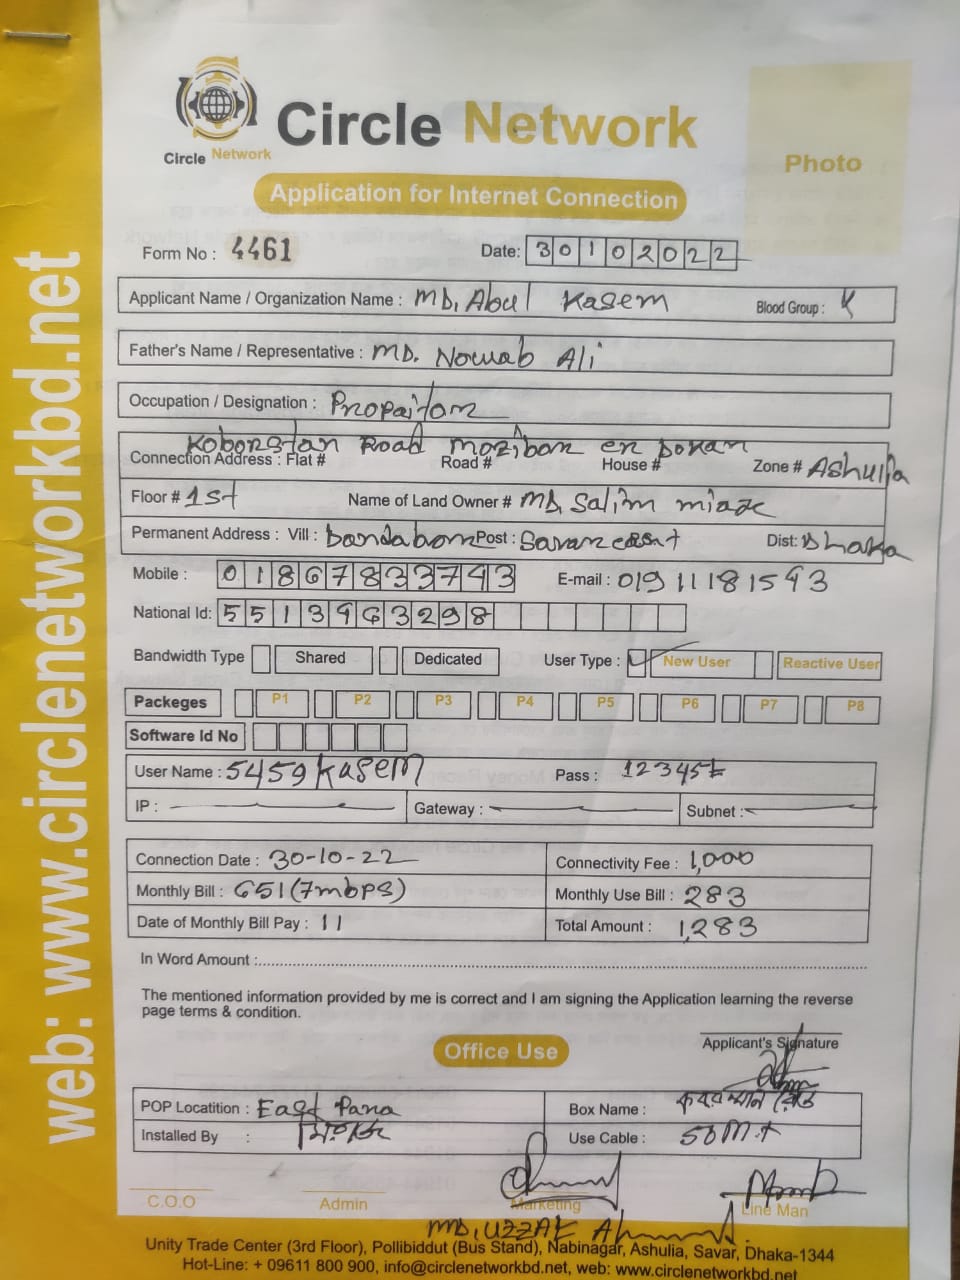 web: www.circlenetworkbd.net
Circle Network
Circle Network
Photo
Application for Internet Connection
Form No : 4461
Date: 30102022
Applicant Name / Organization Name : MD. Abul Kasem Blood Group :
Father's Name / Representative : MD. Nowab Ali
Occupation / Designation : Propaitor
Koborstan Road Moziban er Dokan
Connection Address : Flat # Road # House # Zone # Ashulia
Floor # 1st Name of Land Owner # MD, Salim miaze
Permanent Address : Vill : bandabon Post : Savar Dist: Dhaka
Mobile : 01867833743 E-mail : 01911181593
National Id: 5513963298
Bandwidth Type Shared Dedicated User Type : New User Reactive User
Packeges P1 P2 P3 P4 P5 P6 P7 P8
Software Id No
User Name : 5459kasem Pass : 12345
IP : Gateway : Subnet :
Connection Date : 30-10-22 Connectivity Fee : 1,000
Monthly Bill : 651 (7mbps) Monthly Use Bill : 283
Date of Monthly Bill Pay : 11 Total Amount : 1,283
In Word Amount :
The mentioned information provided by me is correct and I am signing the Application learning the reverse
page terms & condition.
Applicant's Signature
Office Use
POP Locatition : East Para Box Name : কবরস্থান রোড
Installed By : Use Cable : 50M
C.O.O Admin Marketing Line Man
MD, UZZAL Ahmed
Unity Trade Center (3rd Floor), Pollibiddut (Bus Stand), Nabinagar, Ashulia, Savar, Dhaka-1344
Hot-Line: + 09611 800 900, info@circlenetworkbd.net, web: www.circlenetworkbd.net